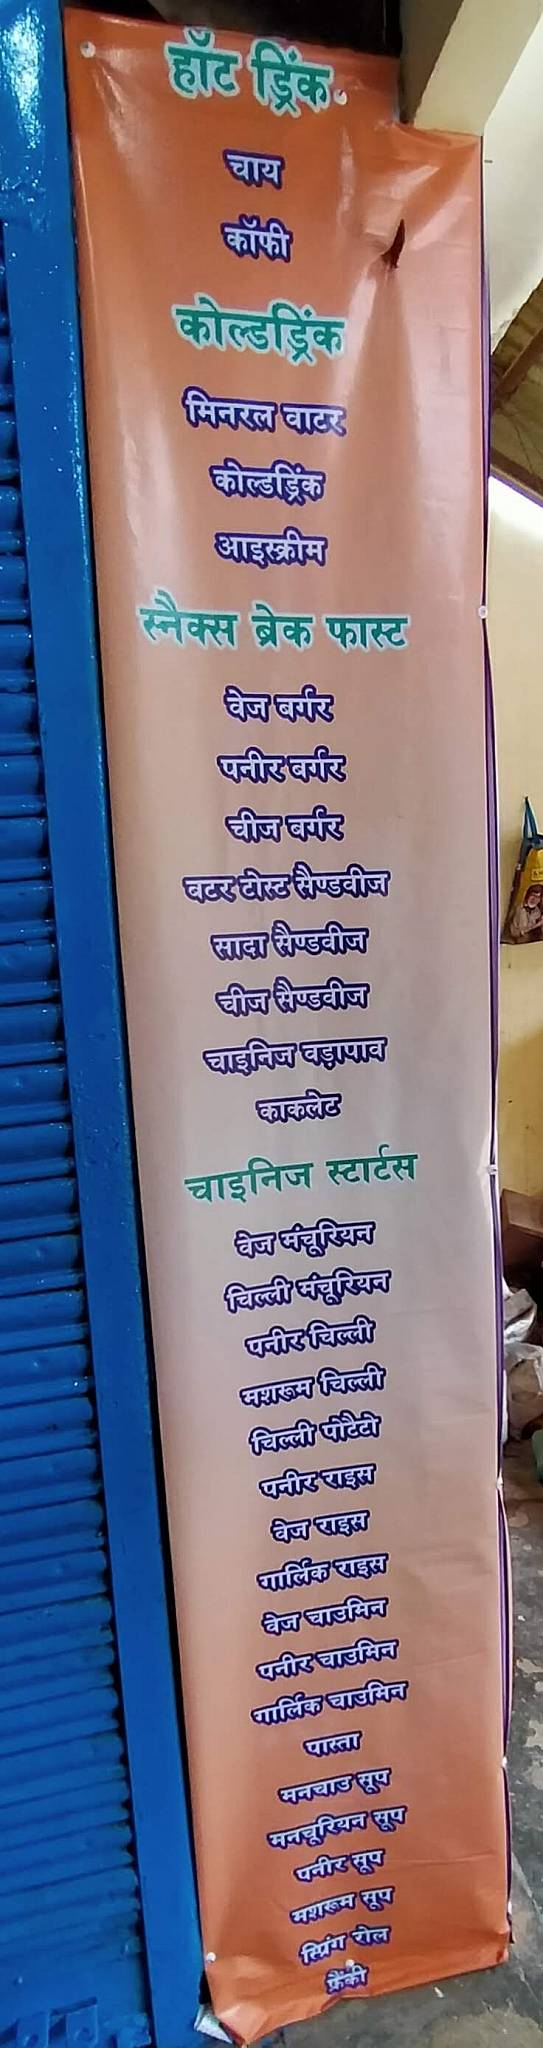 हॉट ड्रिंक
चाय
कॉफी
कोल्डड्रिंक
मिनरल वाटर
कोल्डड्रिंक
आइस्क्रीम
स्नैक्स ब्रेक फास्ट
वेज बर्गर
पनीर बर्गर
चीज बर्गर
बटर टोस्ट सैण्डवीज
सादा सैण्डवीज
चीज सैण्डवीज
चाइनिज वड़ापाव
काकलेट
चाइनिज स्टार्टस
वेज मंचूरियन
चिल्ली मंचूरियन
पनीर चिल्ली
मशरूम चिल्ली
चिल्ली पोटैटो
पनीर राइस
वेज राइस
गार्लिक राइस
वेज चाउमिन
पनीर चाउमिन
गार्लिक चाउमिन
पास्ता
मनचाउ सूप
मनचूरियन सूप
पनीर सूप
मशरूम सूप
स्प्रिंग रोल
फ्रैंकी